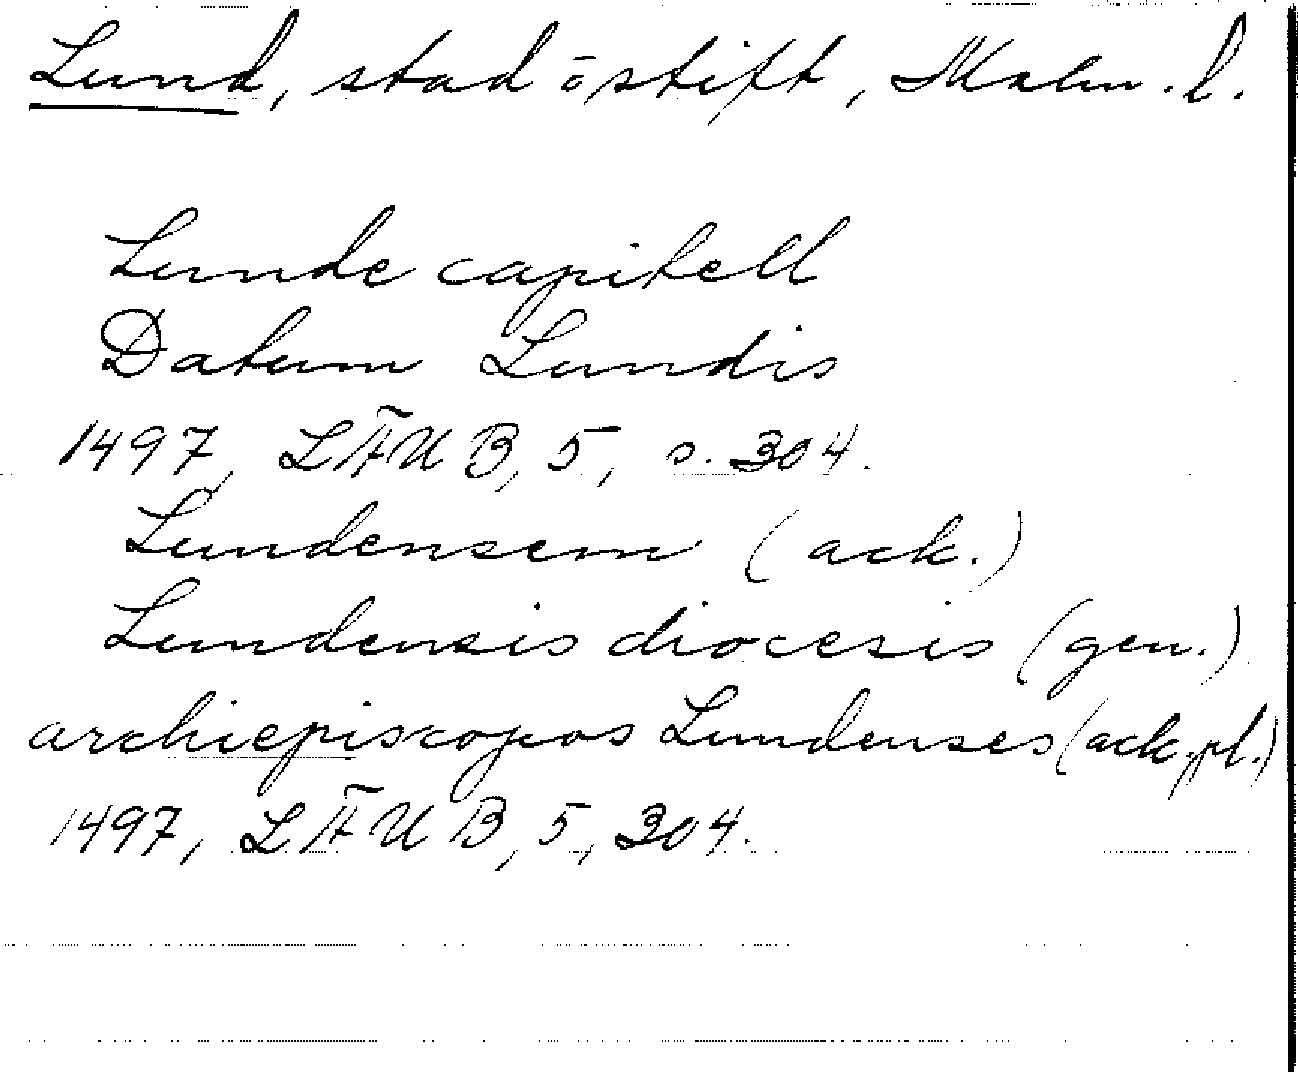 Lund, stad o stift, Malm. l.
Lunde capitell
Datum Lundis
1497, LÄUB, 5, s. 304.
Lundensem (ack.)
Lundensis diocesis (gen.)
archiepiscopos Lundenses (ack. pl.)
1497, LÄUB, 5, 304.